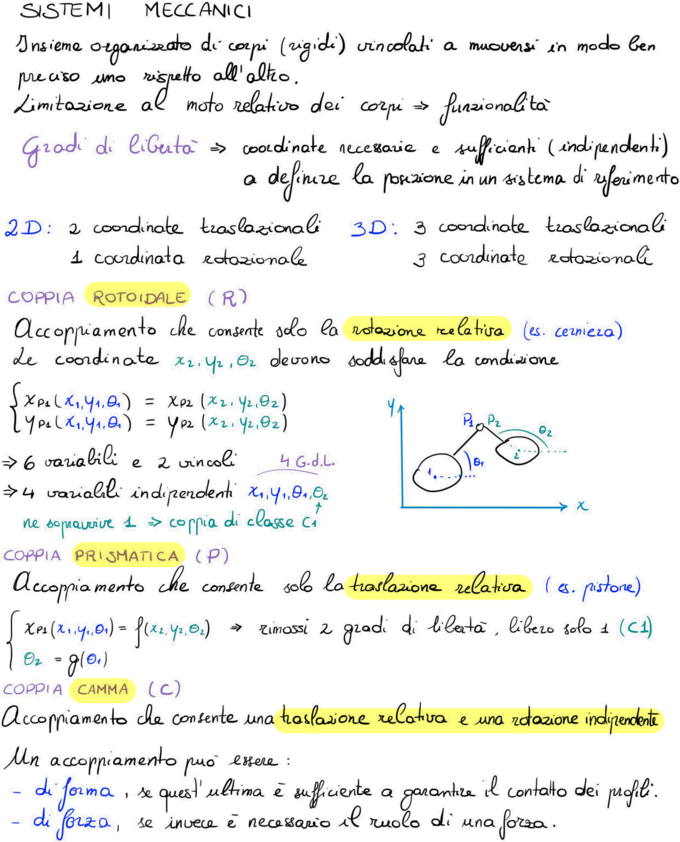 SISTEMI MECCANICI
Insieme organizzato di corpi (rigidi) vincolati a muoversi in modo ben
preciso uno rispetto all'altro.
Limitazione al moto relativo dei corpi ⇒ funzionalità
Gradi di libertà ⇒ coordinate necessarie e sufficienti (indipendenti)
a definire la posizione in un sistema di riferimento
2D: 2 coordinate traslazionali 3D: 3 coordinate traslazionali
1 coordinata rotazionale 3 coordinate rotazionali
COPPIA ROTOIDALE (R)
Accoppiamento che consente solo la rotazione relativa (es. cerniera)
Le coordinate x2, y2, θ2 devono soddisfare la condizione
{ xP1(x1,y1,θ1) = xP2 (x2,y2,θ2)
yP1(x1,y1,θ1) = yP2 (x2,y2,θ2)
y
P1 P2
θ2
θ1
1
2
x
⇒ 6 variabili e 2 vincoli 4 G.d.L.
⇒ 4 variabili indipendenti x1,y1,θ1,θ2
ne sopravvive 1 ⇒ coppia di classe C1
COPPIA PRISMATICA (P)
Accoppiamento che consente solo la traslazione relativa (es. pistone)
{ xP1(x1,y1,θ1) = f(x2,y2,θ2) ⇒ rimossi 2 gradi di libertà, libero solo 1 (C1)
θ2 = g(θ1)
COPPIA CAMMA (C)
Accoppiamento che consente una traslazione relativa e una rotazione indipendente
Un accoppiamento può essere:
- di forma, se quest'ultima è sufficiente a garantire il contatto dei profili.
- di forza, se invece è necessario il ruolo di una forza.